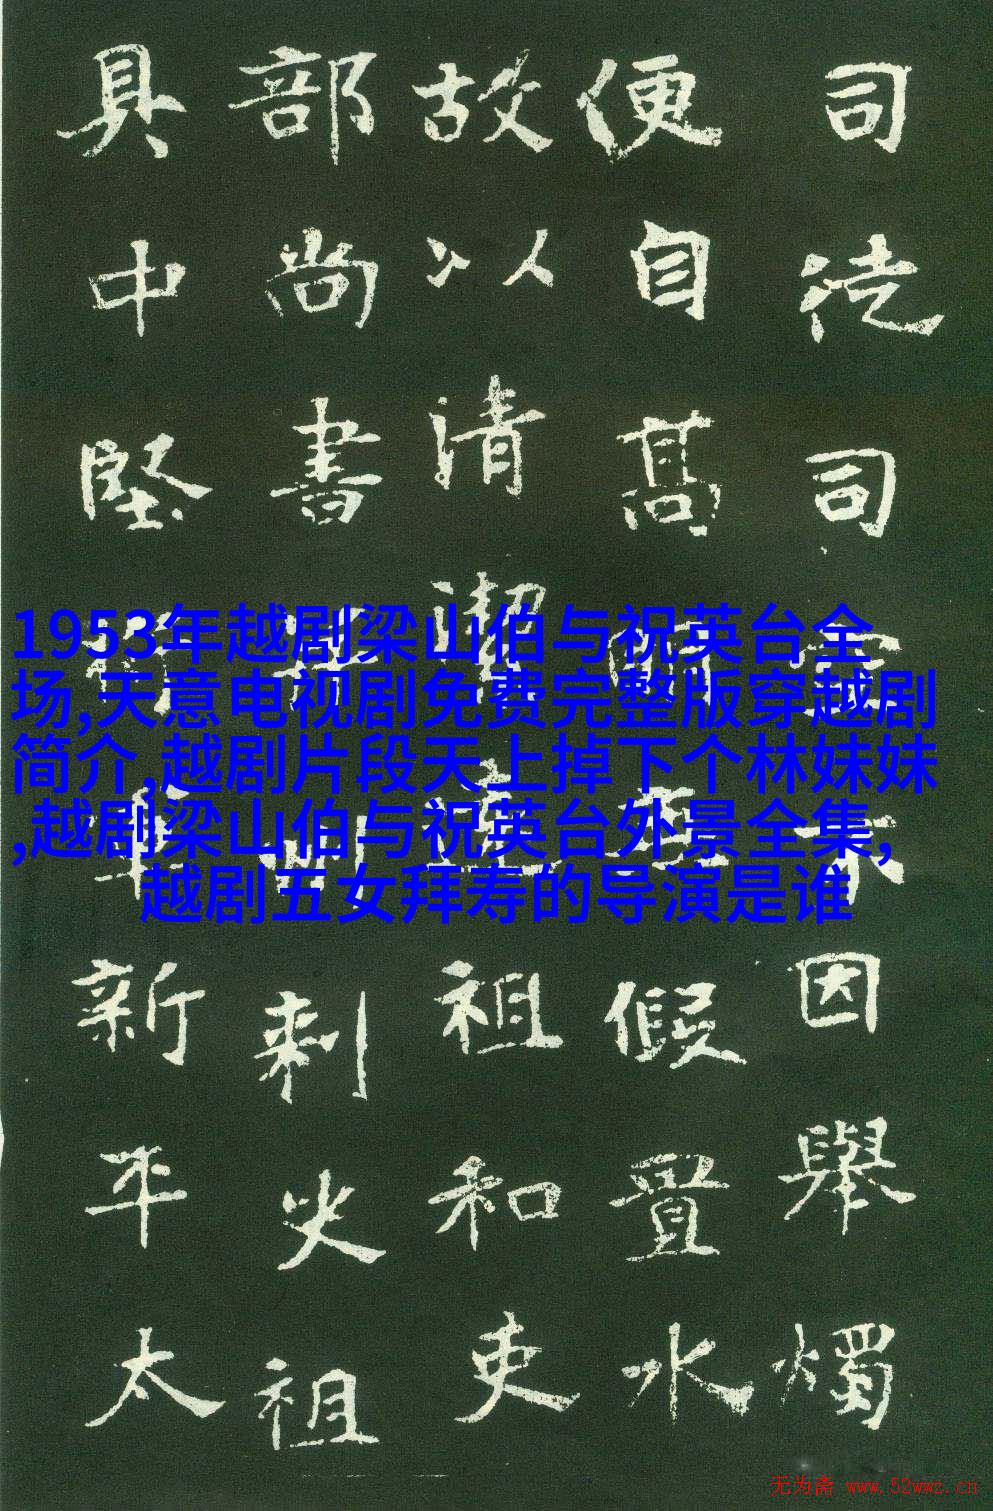 司徒司空不因舉燭
便自高明假置水
故以清潔祖和吏
部尚書州刺史祖
具中堅將軍新平太
1953年越剧梁山伯与祝英台全
场,天意电视剧免费完整版穿越剧
简介,越剧片段天上掉下个林妹妹
,越剧梁山伯与祝英台外景全集,
越剧五女拜寿的导演是谁
无为斋 www.52wwz.cn